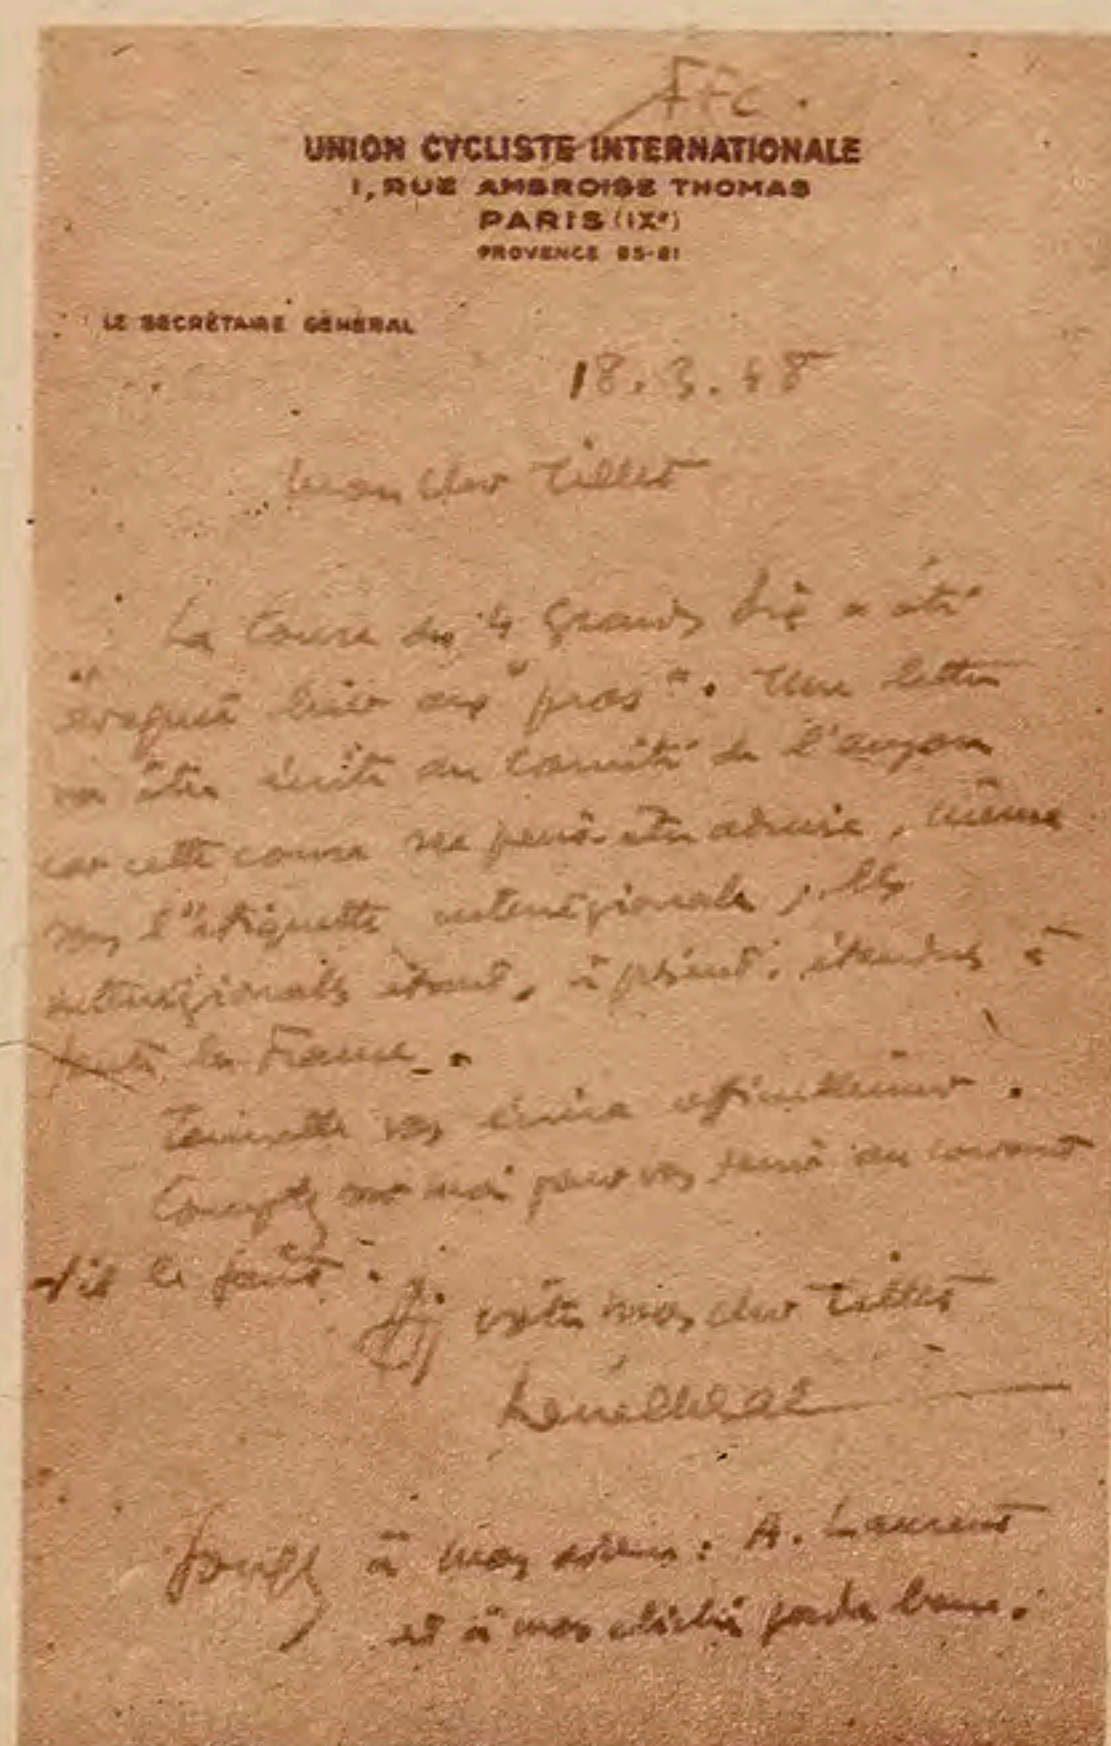 FFC.
UNION CYCLISTE INTERNATIONALE
1, RUE AMBROISE THOMAS
PARIS (IXe)
PROVENCE 85-81
LE SECRÉTAIRE GÉNÉRAL
18.3.48
Mon cher Tillet
La Course des 4 Grands Prix a été
évoquée hier aux "pros". Une lettre
va être écrite au Comité de l'
car cette course ne peut être admise, même
sous l'étiquette interrégionale, les
interrégionales étant, à présent, étendues à
toute la France.
vous écrira officiellement.
Comptez sur moi pour vous tenir au courant
s'il le faut.
votre mon cher Tillet
René Chesal
Songez à mon : A. Laurent
et à mon cliché